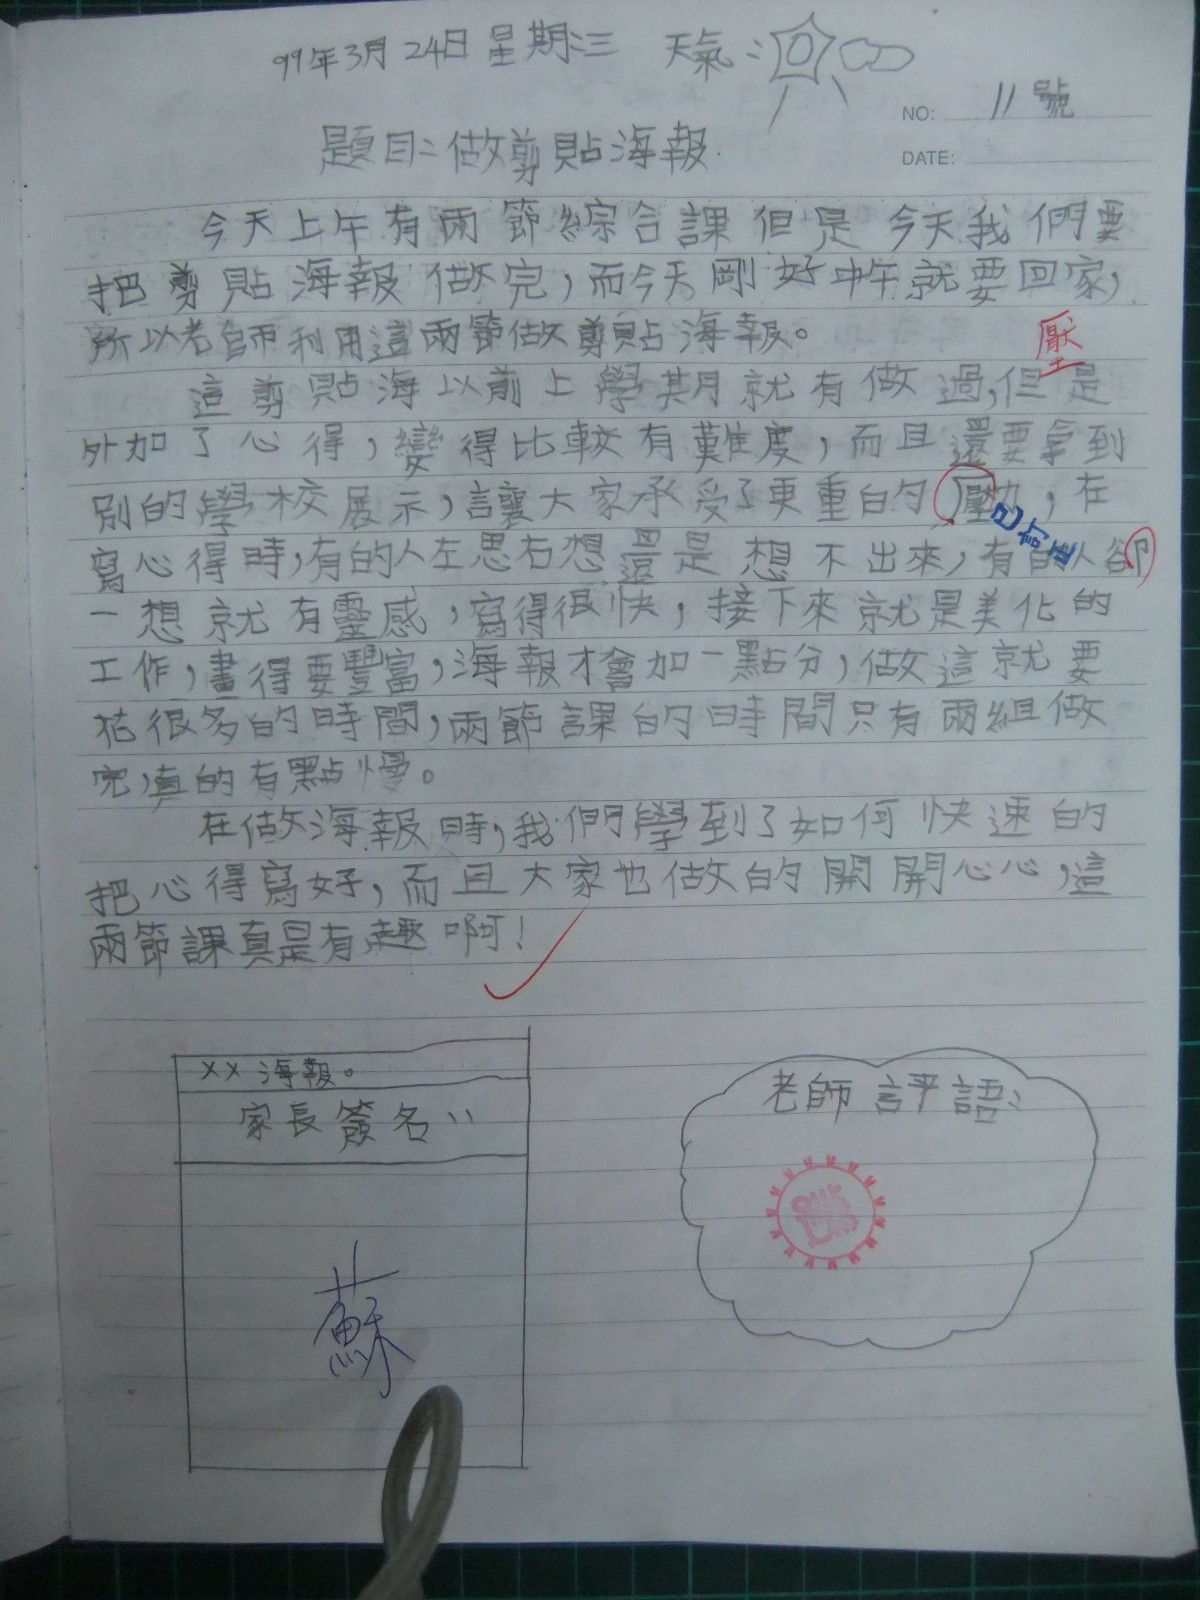 99年3月24日星期三 天氣：
NO: 11號
題目：做剪貼海報
DATE:
今天上午有兩節綜合課但是今天我們要
把剪貼海報做完，而今天剛好中午就要回家，
所以老師利用這兩節做剪貼海報。
壓
這剪貼海以前上學期就有做過，但是
外加了心得，變得比較有難度，而且還要拿到
別的學校展示，讓大家承受了更重的壓力，在
已訂正
寫心得時，有的人左思右想還是想不出來，有的人卻
一想就有靈感，寫得很快，接下來就是美化的
工作，畫得要豐富，海報才會加一點分，做這就要
花很多的時間，兩節課的時間只有兩組做
完，真的有點慢。
在做海報時，我們學到了如何快速的
把心得寫好，而且大家也做的開開心心，這
兩節課真是有趣啊！
××海報。
家長簽名：
老師評語：
蘇